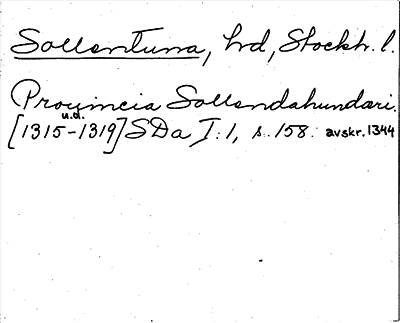 Sollentuna, hd, Stockh. l.
Prouincia Sollendahundari.
u.d.
[1315-1319] SDa I:1, s. 158. avskr. 1344